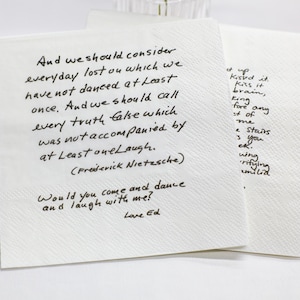 And we should consider
everyday lost on which we
have not danced at Least
once. And we should call
every truth false which
was not accompanied by
at Least one Laugh.
(Frederick Nietzsche)
Would you come and dance
and laugh with me?
Love Ed
up
kiss it
brain,
any
of
me
stairs
you